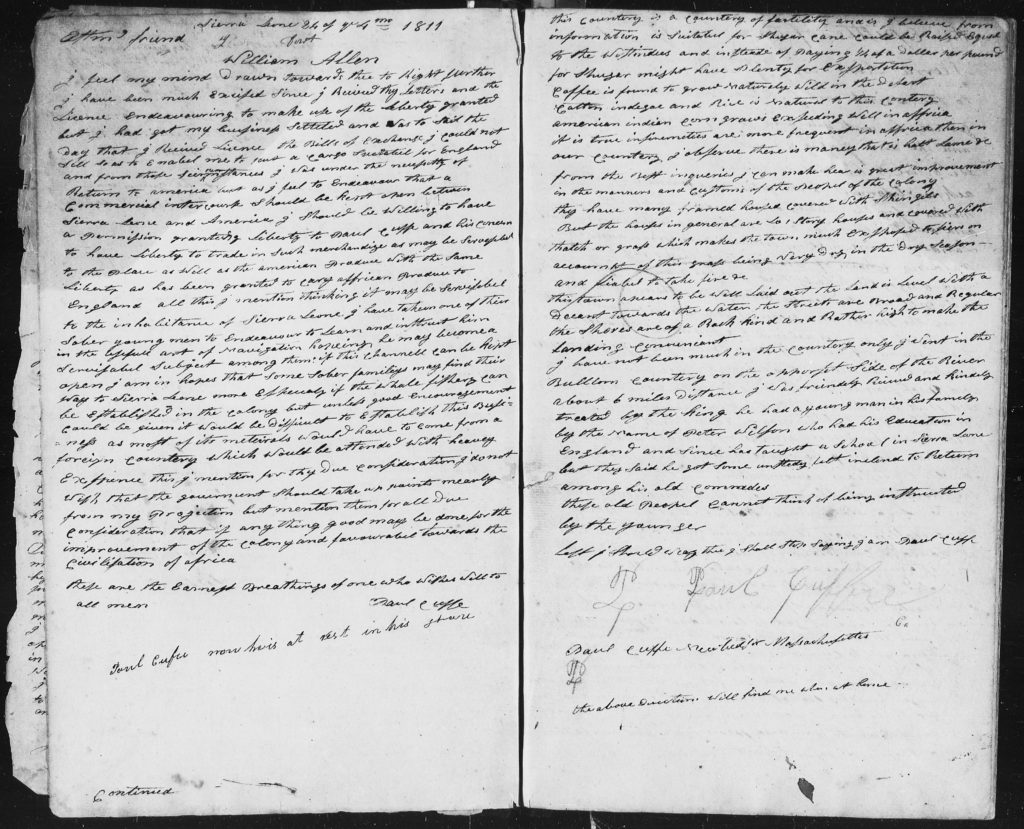 Sierra Leone 24 of ye 4 mo 1811
friend
William Allen
j feel my mind Drawn toward thee to Right further
j have been much Excised Since j Recived thy Letters and the
Licence Endeavouring to make use of the Liberty granted
but j had got my business Settled and Was to Sail the
Day that j Recived Licence the Bills of Exchang j Could not
Sell So as to Enabel me to put a Cargo Suitabel for England
and from these Scircumstances j Was under the nesessity of
Return to america but as j feel to Endeavour that a
Commercial intercourse Should be kept open between
Sierra Leone and America j Should be Willing to have
a Permission granting Liberty to Paul Cuffe and his Concern
to have Liberty to trade in Such merchandize as may be Servisabel
to the Place as Well as the american Produce With the Same
Liberty as has been granted to Cary affrican Produce to
England all this j mention thinking it may be Servisebel
to the inhabitance of Sierra Leone j have taken one of their
Sober young men to Endeavour to Learn and instruct him
in the usefull art of Navigation hopeing he may become a
Servisabel Subject among them if this Channell can be Kept
open j am in hopes that Some Sober familys may find their
Way to Sierra Leone more Espesuely if the Whale fishery can
be Established in the Colony but unless good Encouragement
Could be given it would be Difficult to Establish this Busi-
-ness as most of its meterials Would have to come from a
foreign Country Which Would be attended With heavey
Exspence this j mention for thy Due Consideration j do not
Wish that the goverment Should take up points mearly
from my Projection but mention them for all due
Consideration that if any thing good may be done for the
improvement of the Colony and favourabel towards the
Civilisation of africa
these are the Earnest Breathings of one who Wishes Well to
all men
Paul Cuffe
Paul Cufee now he is at rest in his grave
Continued
this Country is a Country of fertility and is j believe from
information is Suitabel for Shugar Cane Could be Raised Equel
to the Westindies and insteade of Paying 1/4 of a dollar per pound
for Shuger might have Plenty for Exsportation
Coffee is found to grow Naturely Wild in the Desert
Cotton indego and Rice is Natural to this Contery
american indian Corn grows Exseding Well in affrica
it is true infirmeties are more frequent in affrica than in
our Country j observe there is maney that is halt Lame &c
from the Best inqueries j can make hear is great improvement
in the manners and Customs of the People of the Colony
they have many framed houses Covered With Shingles
But the houses in general are 1 Story houses and Covered With
thatch or grass which makes the town much Exsposed to fiers on
account of this grass being Very dry in the Dry Season
and Liabel to take fire &c
this town apears to be Well Laid out the Land is Level With a
Decent towards the Water the Streets are Broad and Regular
the Shores are of a Rock Kind and Rather high to make the
Landing Convenient
j have not been much in the Country only j Went in the
Bullom Country on the opporsit Side of the River
about 6 miles Distance j Was friendly Recived and Kindely
treated by the King he had a young man in his family
by the Name of Peter Wilson who had his Education in
England and Since has taught a School in Sierra Leone
but they Said he got Some unsteady but intend to Return
among his old Comrades
these old Peopel Cannot think of being instructed
by the younger
Lest j Should Weary thee j Shall Stop Saying j am Paul Cuffe
Paul Cuffe
Paul Cuffe Massachusettes
the above Direction Will find me when at home